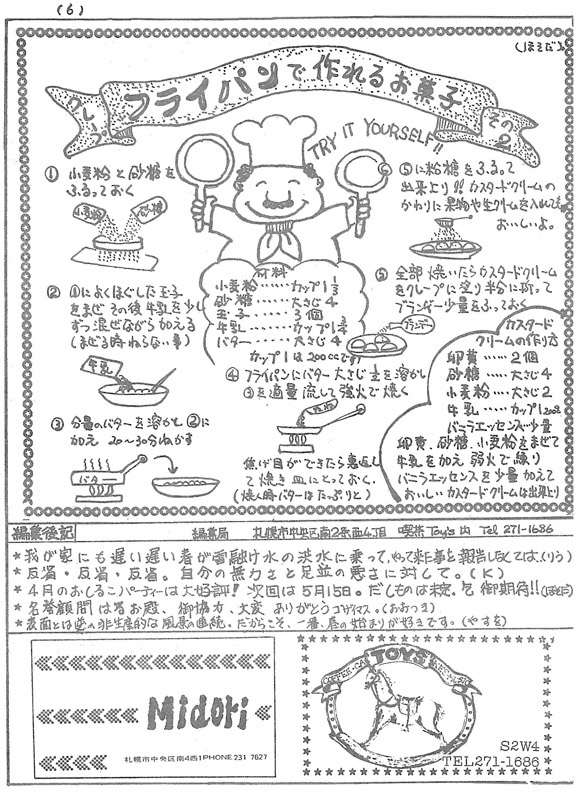 (6)
(ほそだ)
クレープ フライパンで作れるお菓子 その2
TRY IT YOURSELF!!
① 小麦粉と砂糖を
ふるっておく
小麦粉 砂糖
② ①によくほぐした玉子
をまぜ その後 牛乳を少し
ずつ混ぜながら加える
(まぜる時ねらない事)
牛乳
③ 分量のバターを溶かし②に
加え 20〜30分ねかす
バター
材料
小麦粉‥‥‥カップ1 1/3
砂糖‥‥‥大さじ4
玉子‥‥‥3個
牛乳‥‥‥カップ1 3/4
バター‥‥‥大さじ4
カップ1は200ccです
④ フライパンにバター大さじ 1/2を溶かし
③を適量流して強火で焼く
焦げ目ができたら裏返し
て焼き皿にとっておく。
(焼く時バターはたっぷりと)
⑤ 全部焼いたらカスタードクリーム
をクレープに塗り半分に折って
ブランデー少量をふっておく
ブランデー
⑤に粉糖をふるって
出来上り!! カスタードクリームの
かわりに果物や生クリームを入れても
おいしいよ。
カスタード
クリームの作り方
卵黄‥‥‥2個
砂糖‥‥‥大さじ4
小麦粉‥‥大さじ2
牛乳‥‥‥カップ1
バニラエッセンス少量
卵黄、砂糖、小麦粉をまぜて
牛乳を加え 弱火で練り
バニラエッセンスを少量加えて
おいしいカスタードクリームは出来上り
編集後記 編集局 札幌市中央区南2条西4丁目 喫茶Toy's内 Tel 271-1686
★我が家にも遅い遅い春が雪融け水の洪水に乗って,やって来た事を報告しなくては。(りう)
★反省・反省・反省。自分の無力さと足並の悪さに対して。(K)
★4月のおしるこパーティーは大好評! 次回は5月15日。だしものは未定。乞御期待!!(ほそだ)
★名誉顧問は 御協力、大変 ありがとうゴザイマス。(おおつき)
★裏面とは逆の非生産的な風景の連続。だからこそ、一番、春の始まりが好きです。(やすを)
Midori
札幌市中央区南4西1 PHONE 231 7627
COFFEE TOYS
S2W4
TEL271-1686